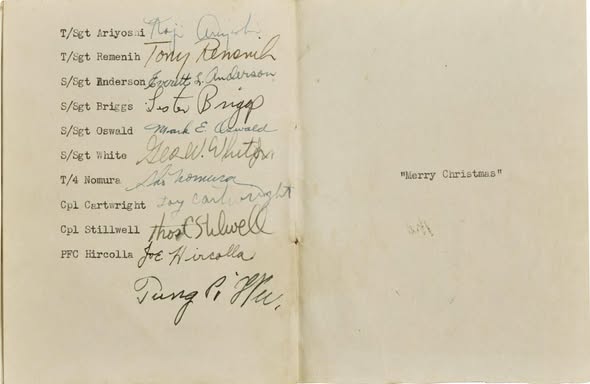 T/Sgt Ariyoshi Koji Ariyoshi
T/Sgt Remenih Tony Remenih
S/Sgt Anderson Everett L. Anderson
S/Sgt Briggs Lester Briggs
S/Sgt Oswald Mark E. Oswald
S/Sgt White Geo W. White
T/4 Nomura Sho Nomura
Cpl Cartwright Cartwright
Cpl Stillwell Stillwell
PFC Hircolla Joe Hircolla
Tung Pi Wu.
"Merry Christmas"